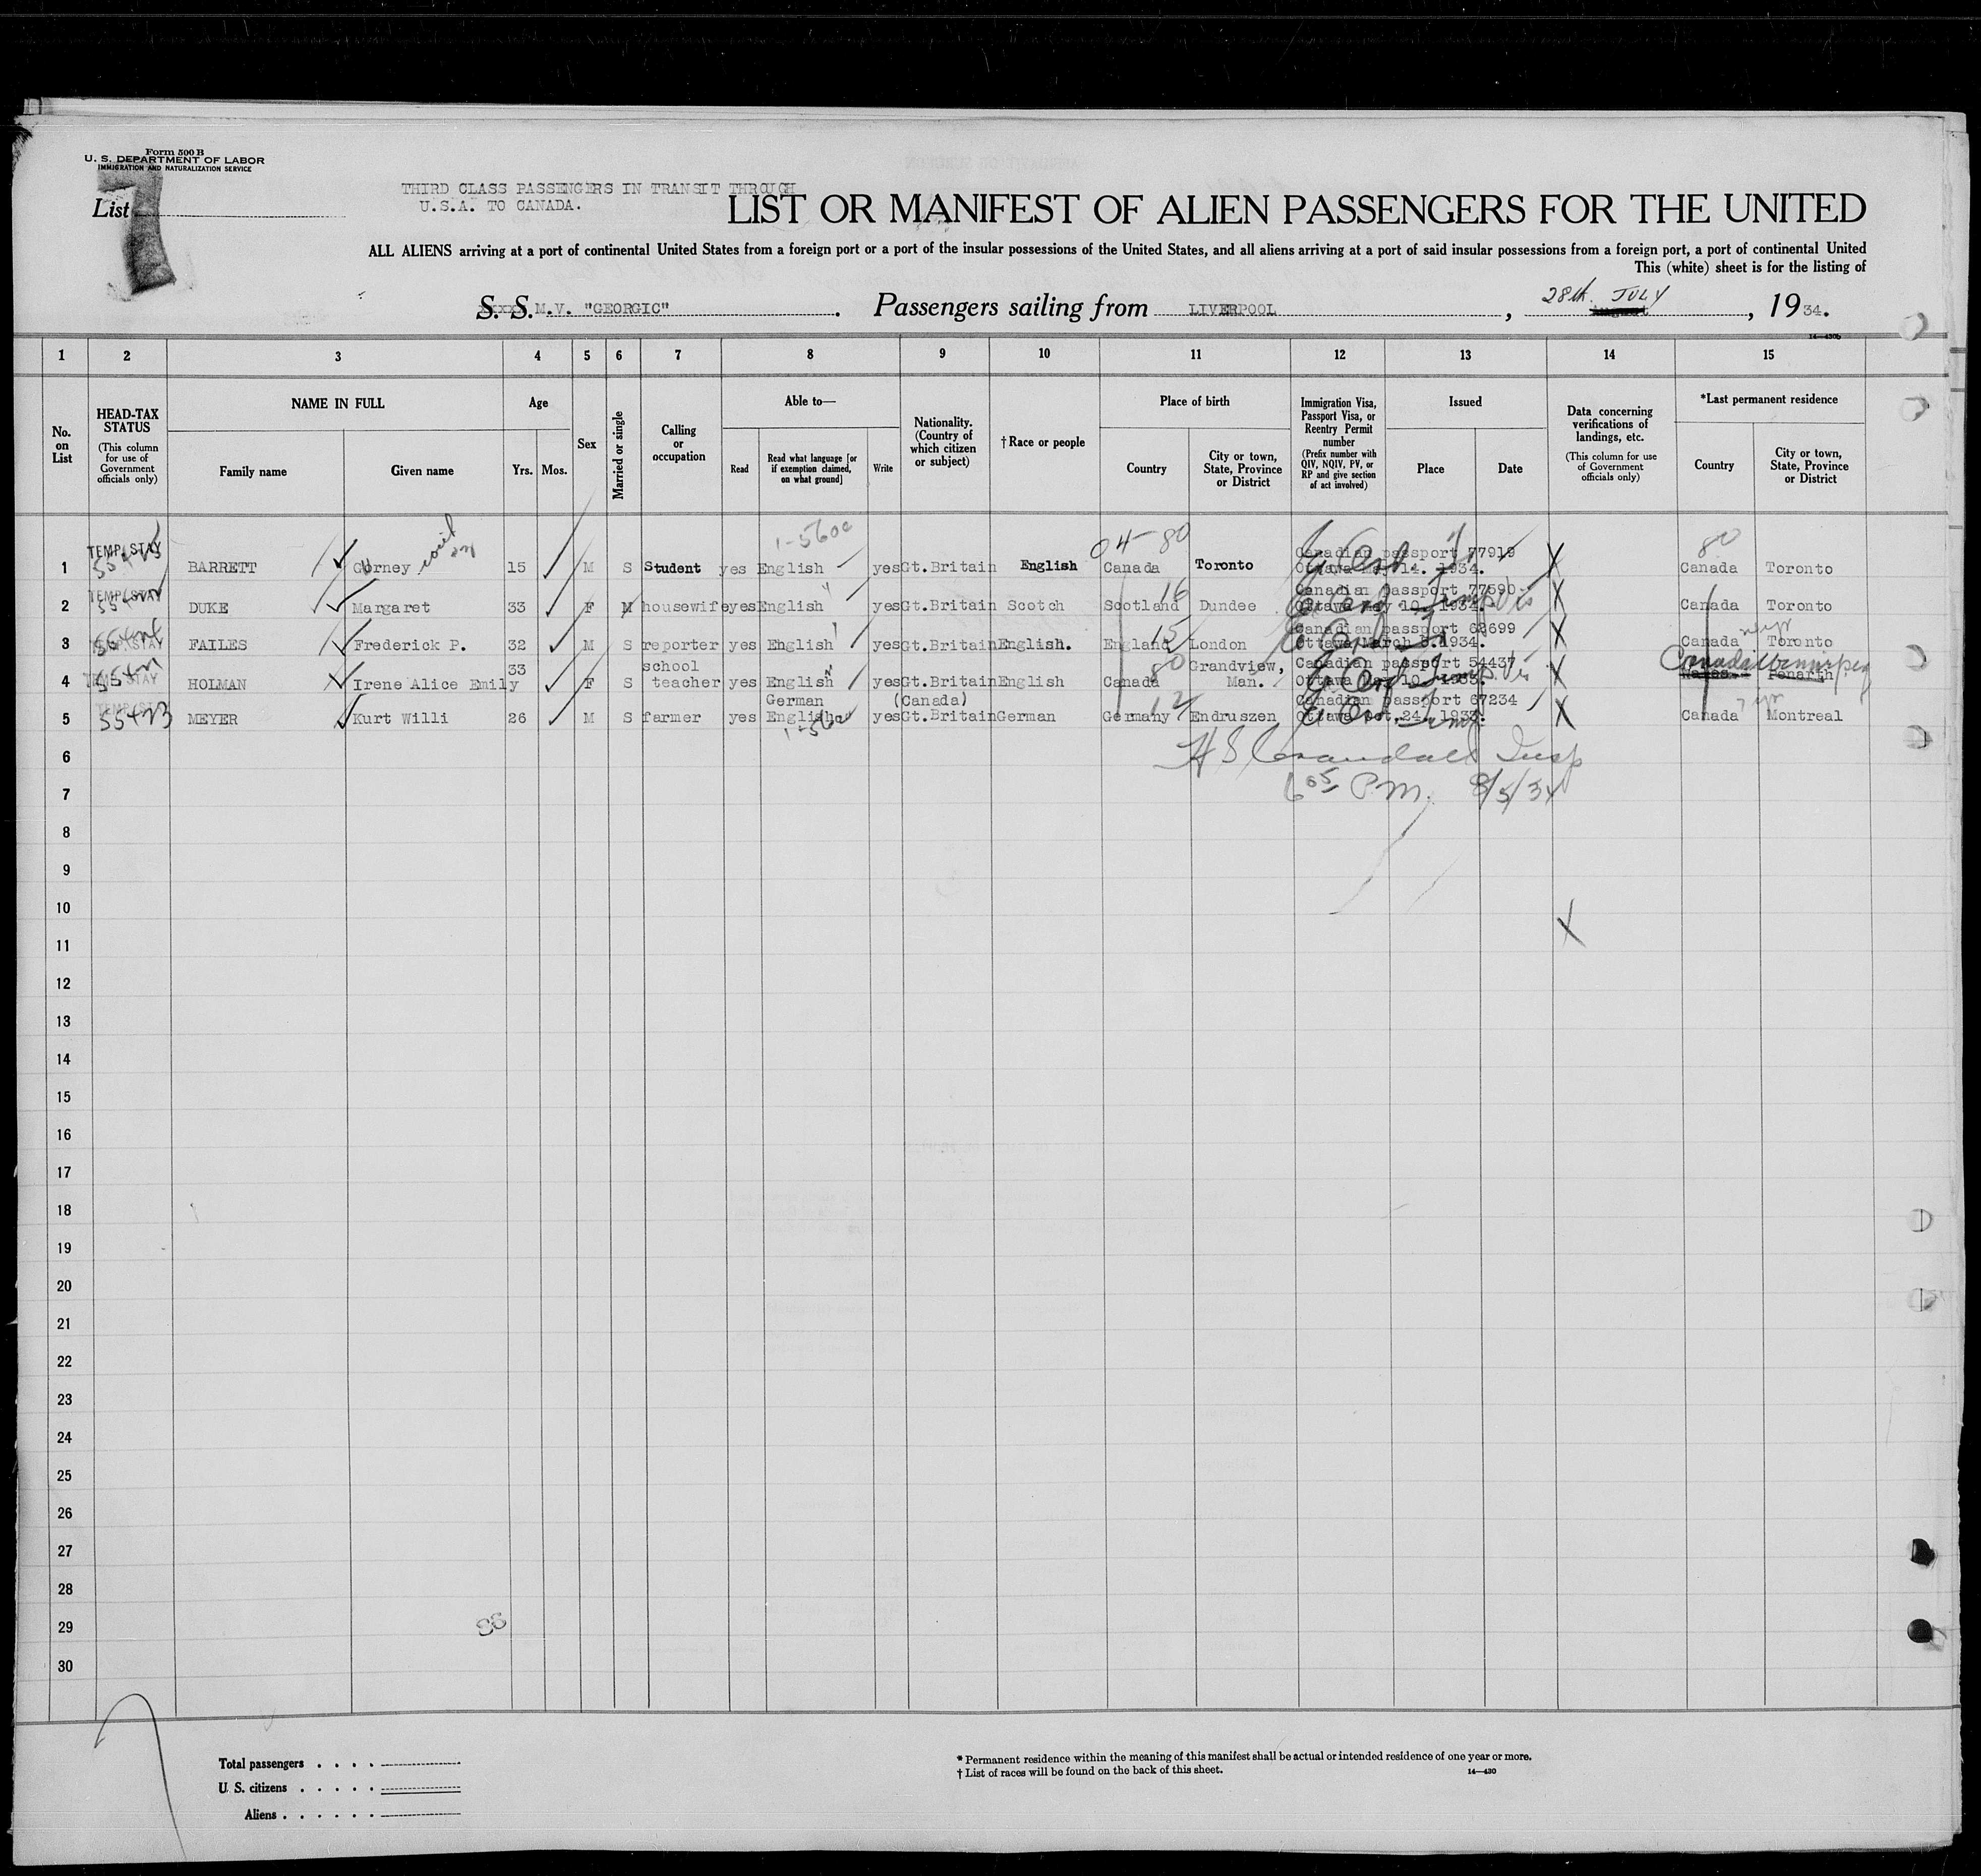 Form 500 B
U. S. DEPARTMENT OF LABOR
IMMIGRATION AND NATURALIZATION SERVICE
THIRD CLASS PASSENGERS IN TRANSIT THROUGH
U.S.A. TO CANADA.
List
LIST OR MANIFEST OF ALIEN PASSENGERS FOR THE UNITED
ALL ALIENS arriving at a port of continental United States from a foreign port or a port of the insular possessions of the United States, and all aliens arriving at a port of said insular possessions from a foreign port, a port of continental United
This (white) sheet is for the listing of
S. S. M.V. "GEORGIC" Passengers sailing from LIVERPOOL, 28th JULY, 1934.
14—430b
1 2 3 4 5 6 7 8 9 10 11 12 13 14 15
No. on List
HEAD-TAX STATUS
(This column for use of Government officials only)
NAME IN FULL
Family name
Given name
Age
Yrs.
Mos.
Sex
Married or single
Calling or occupation
Able to—
Read
Read what language [or if exemption claimed, on what ground]
Write
Nationality. (Country of which citizen or subject)
† Race or people
Place of birth
Country
City or town, State, Province or District
Immigration Visa, Passport Visa, or Reentry Permit number
(Prefix number with QIV, NQIV, PV, or RP and give section of act involved)
Issued
Place
Date
Data concerning verifications of landings, etc.
(This column for use of Government officials only)
*Last permanent residence
Country
City or town, State, Province or District
1-560c
04-80
80
1 TEMP. STAY BARRETT Gurney 15 M S Student yes English yes Gt.Britain English Canada Toronto Canadian passport 77919 Ottawa May 14. 1934. X Canada Toronto
2 TEMP. STAY DUKE Margaret 33 F M housewife yes English yes Gt.Britain Scotch Scotland 16 Dundee Canadian passport 77590 Ottawa May 10. 1934. X Canada Toronto
3 TEMP. STAY FAILES Frederick P. 32 M S reporter yes English yes Gt.Britain English. England 15 London Canadian passport 68699 Ottawa March 1934. X Canada Toronto
4 TEMP. STAY HOLMAN Irene Alice Emily 33 F S school teacher yes English yes Gt.Britain English Canada 80 Grandview, Man. Canadian passport 54437 Ottawa May 10. 1933. X Wales Penarth Canada Winnipeg
5 TEMP. STAY 55423 MEYER Kurt Willi 26 M S farmer yes German English yes (Canada) Gt.Britain German Germany 12 Endruszen Canadian passport 67234 Ottawa Oct. 24. 1933. X Canada 7 yr Montreal
1-560c
6 H S Crandall Insp
7 6 05 P.M. 8/5/34
8
9
10 X
11
12
13
14
15
16
17
18
19
20
21
22
23
24
25
26
27
28
29
30
Total passengers . . . .
U. S. citizens . . . . .
Aliens . . . . . .
* Permanent residence within the meaning of this manifest shall be actual or intended residence of one year or more.
† List of races will be found on the back of this sheet.
14—430